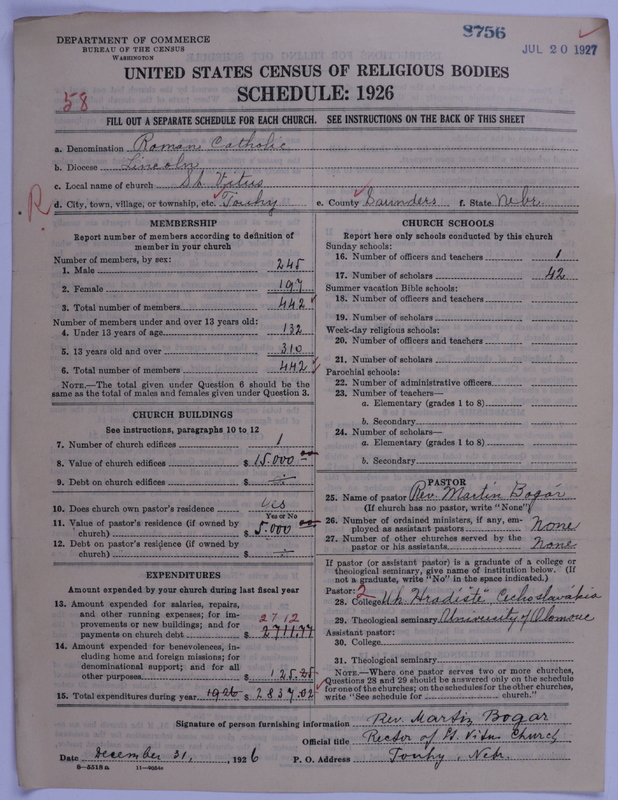 8756
JUL 20 1927
DEPARTMENT OF COMMERCE
BUREAU OF THE CENSUS
WASHINGTON
UNITED STATES CENSUS OF RELIGIOUS BODIES
SCHEDULE: 1926
58
FILL OUT A SEPARATE SCHEDULE FOR EACH CHURCH. SEE INSTRUCTIONS ON THE BACK OF THIS SHEET
a. Denomination Roman Catholic
b. Diocese Lincoln
c. Local name of church St. Vitus
R
d. City, town, village, or township, etc. Touhy e. County Saunders f. State Nebr.
MEMBERSHIP
Report number of members according to definition of
member in your church
Number of members, by sex:
1. Male 245
2. Female 197
3. Total number of members 442
Number of members under and over 13 years old:
4. Under 13 years of age 132
5. 13 years old and over 310
6. Total number of members 442
NOTE.—The total given under Question 6 should be the
same as the total of males and females given under Question 3.
CHURCH BUILDINGS
See instructions, paragraphs 10 to 12
7. Number of church edifices 1
8. Value of church edifices $ 15.000 00
9. Debt on church edifices $
10. Does church own pastor's residence yes
Yes or No
11. Value of pastor's residence (if owned by
church) $ 5.000 00
12. Debt on pastor's residence (if owned by
church) $
EXPENDITURES
Amount expended by your church during last fiscal year
13. Amount expended for salaries, repairs,
and other running expenses; for im-
provements or new buildings; and for
payments on church debt $ 2711.77
2712
14. Amount expended for benevolences, in-
cluding home and foreign missions; for
denominational support; and for all
other purposes $ 125.25
15. Total expenditures during year 1926 $ 2837.02
CHURCH SCHOOLS
Report here only schools conducted by this church
Sunday schools:
16. Number of officers and teachers 1
17. Number of scholars 42
Summer vacation Bible schools:
18. Number of officers and teachers
19. Number of scholars
Week-day religious schools:
20. Number of officers and teachers
21. Number of scholars
Parochial schools:
22. Number of administrative officers
23. Number of teachers—
a. Elementary (grades 1 to 8)
b. Secondary
24. Number of scholars—
a. Elementary (grades 1 to 8)
b. Secondary
PASTOR
25. Name of pastor Rev. Martin Bogár
(If church has no pastor, write "None")
26. Number of ordained ministers, if any, em-
ployed as assistant pastors None
27. Number of other churches served by the
pastor or his assistants None
If pastor (or assistant pastor) is a graduate of a college or
theological seminary, give name of institution below. (If
not a graduate, write "No" in the space indicated.)
Pastor: 2
28. College Uh. Hradiště Cechoslavakia
29. Theological seminary University of Olomouc
Assistant pastor:
30. College
31. Theological seminary
NOTE.—Where one pastor serves two or more churches,
Questions 28 and 29 should be answered only on the schedule
for one of the churches; on the schedules for the other churches,
write "See schedule for church."
Signature of person furnishing information Rev. Martin Bogar
Official title Rector of St. Vitus Church
Date December 31, 1926 P. O. Address Touhy, Nebr.
8—5518 a 11—9054